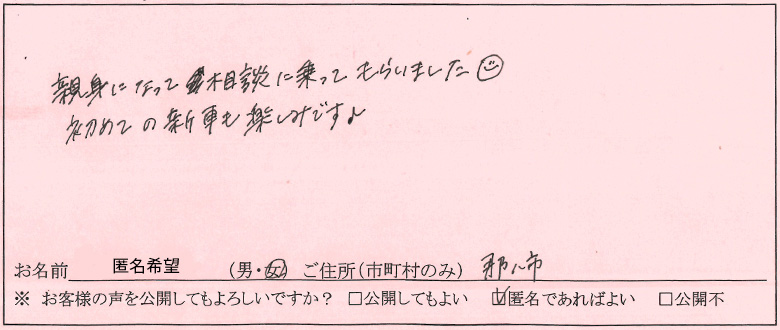 親身になって相談に乗ってもらいました
初めての新車も楽しみです♪
お名前 匿名希望 (男・女) ご住所(市町村のみ) 市
※ お客様の声を公開してもよろしいですか? □公開してもよい ☑匿名であればよい □公開不